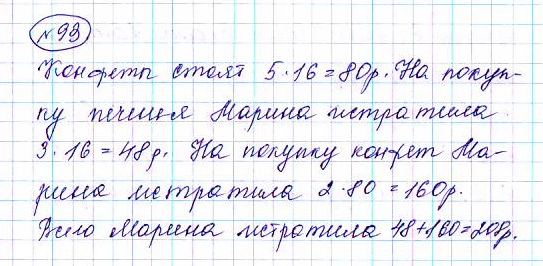 № 93
Конфеты стоят 5·16=80р. На покуп-
ку печенья Марина истратила
3·16=48р. На покупку конфет Ма-
рина истратила 2·80=160р.
Всего Марина истратила 48+160=208р.